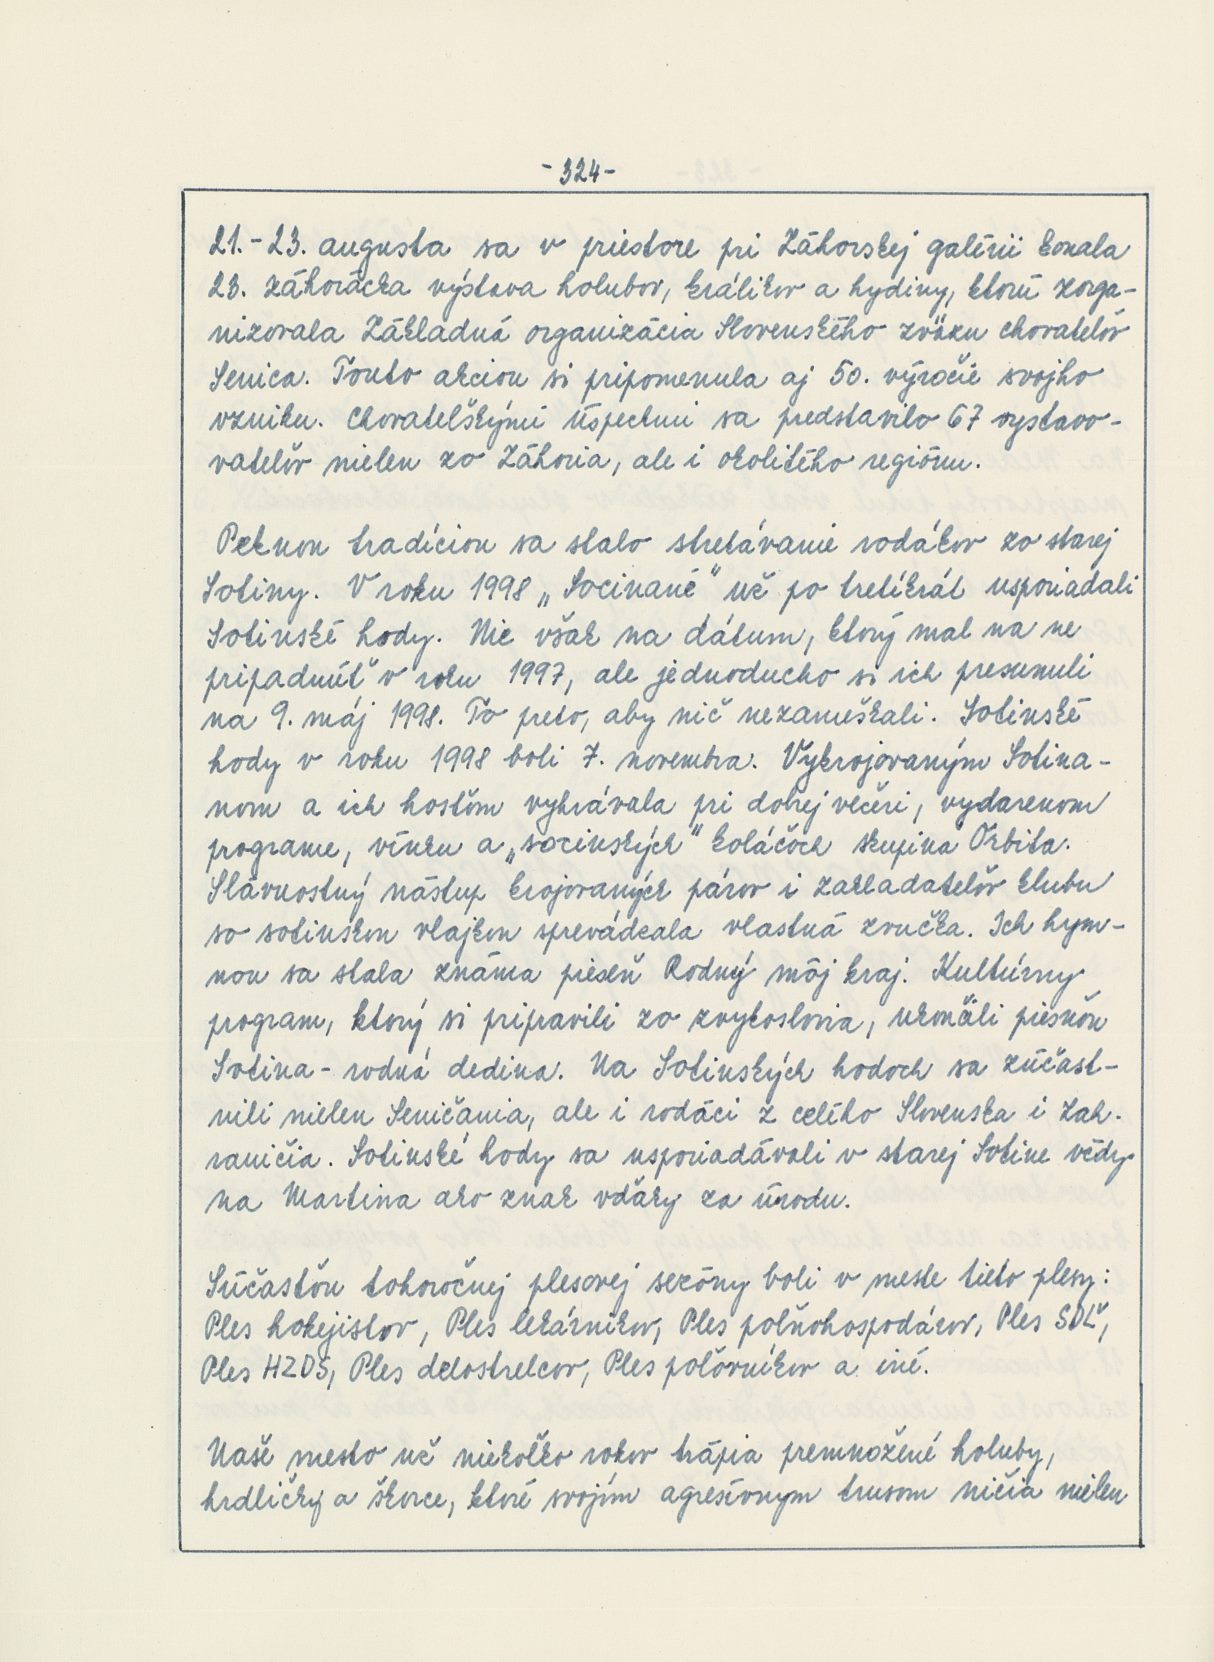 -324-
21.-23. augusta sa v priestore pri Záhorskej galérii konala
23. záhorácka výstava holubov, králikov a hydiny, ktorú zorga-
nizovala Základná organizácia Slovenského zväzu chovateľov
Senica. Touto akciou si pripomenula aj 50. výročie svojho
vzniku. Chovateľskými úspechmi sa predstavilo 67 vystavo-
vateľov nielen zo Záhoria, ale i okolitého regiónu.
Peknou tradíciou sa stalo stretávanie rodákov zo starej
Sotiny. V roku 1998 „Socinané" už po tretíkrát usporiadali
Sotinské hody. Nie však na dátum, ktorý mal na ne
pripadnúť v roku 1997, ale jednoducho si ich presunuli
na 9. máj 1998. To preto, aby nič nezameškali. Sotinské
hody v roku 1998 boli 7. novembra. Vykrojovaným Sotina-
nom a ich hosťom vyhrávala pri dobrej večeri, vydarenom
programe, vínku a „socinských" koláčoch skupina Orbita.
Slávnostný nástup krojovaných párov i zakladateľov klubu
so sotinskou vlajkou sprevádzala vlastná zvučka. Ich hym-
nou sa stala známa pieseň Rodný môj kraj. Kultúrny
program, ktorý si pripravili zo zvykoslovia, ukončili piesňou
Sotina - rodná dedina. Na Sotinských hodoch sa zúčast-
nili nielen Seničania, ale i rodáci z celého Slovenska i zah-
raničia. Sotinské hody sa usporiadávali v starej Sotine vždy
na Martina ako znak vďaky za úrodu.
Súčasťou tohoročnej plesovej sezóny boli v meste tieto plesy:
Ples hokejistov, Ples lekárnikov, Ples poľnohospodárov, Ples SDĽ,
Ples HZDS, Ples delostrelcov, Ples poľovníkov a iné.
Naše mesto už niekoľko rokov trápia premnožené holuby,
hrdličky a škorce, ktoré svojím agresívnym trusom ničia nielen